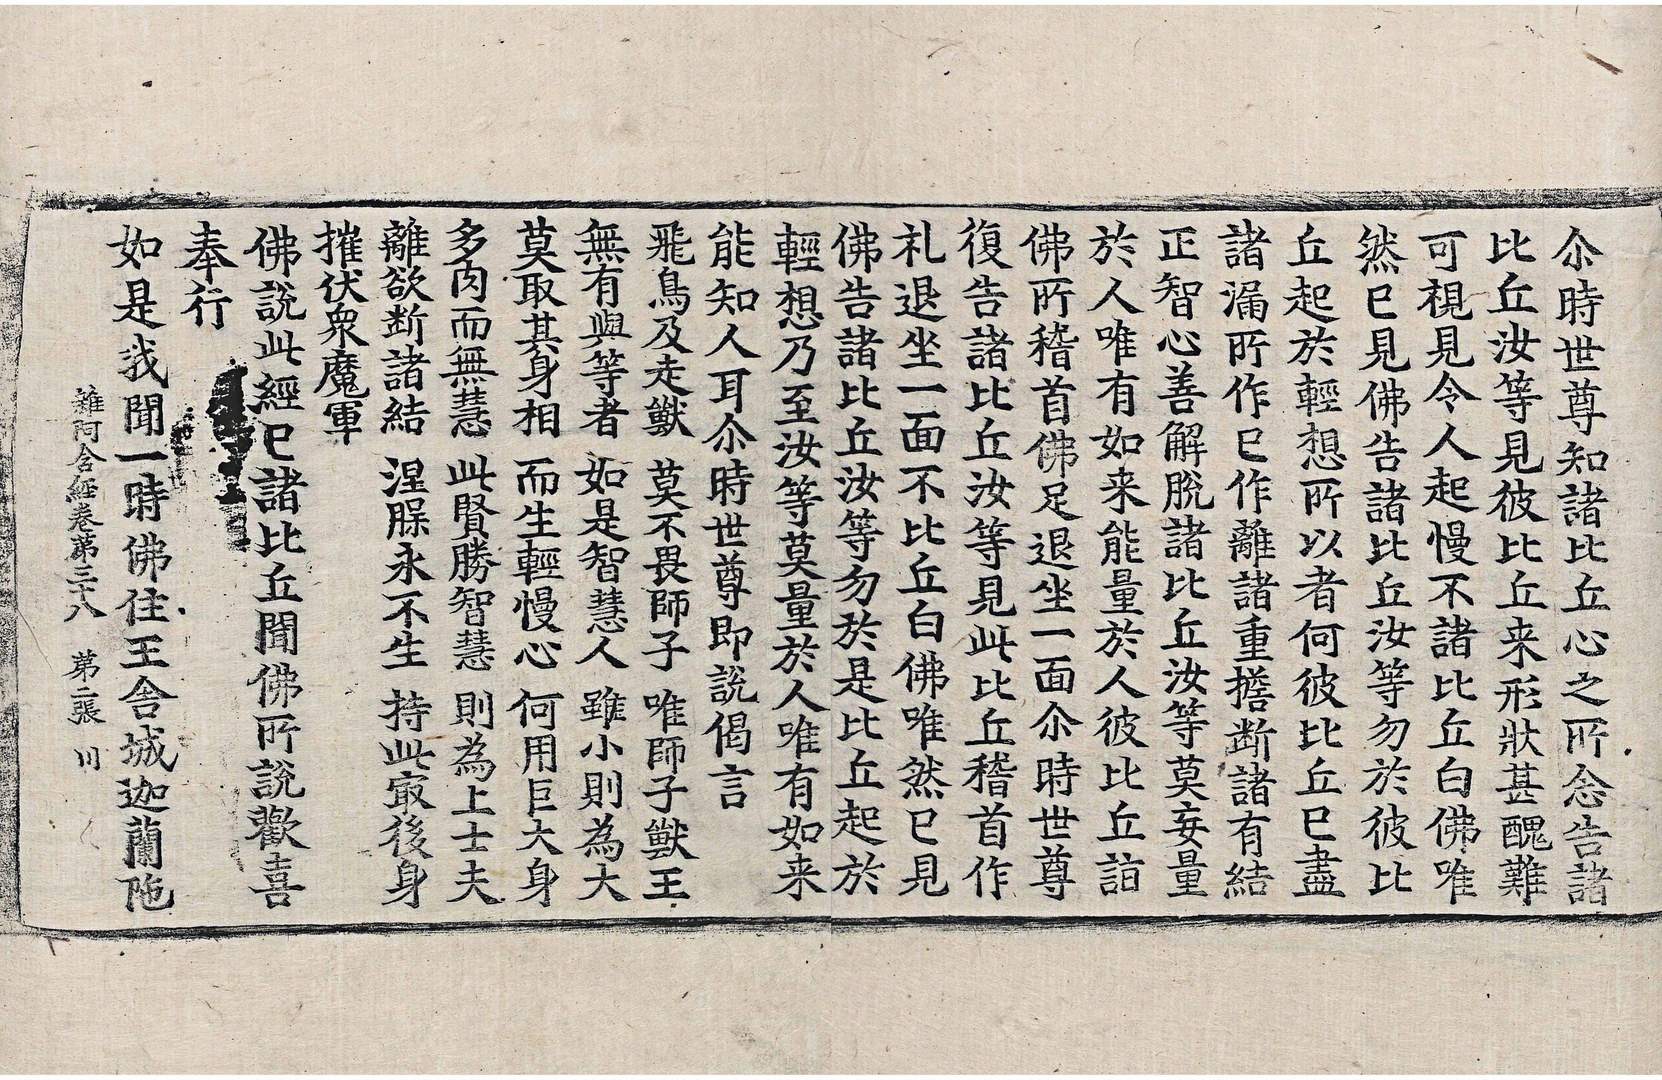 尒時世尊知諸比丘心之所念告諸
比丘汝等見彼比丘来形狀甚醜難
可視見令人起慢不諸比丘白佛唯
然已見佛告諸比丘汝等勿於彼比
丘起於輕想所以者何彼比丘已盡
諸漏所作已作離諸重擔断諸有結
正智心善解脫諸比丘汝等莫妄量
於人唯有如来能量於人彼比丘詣
佛所稽首佛足退坐一面尒時世尊
復告諸比丘汝等見此比丘稽首作
礼退坐一面不比丘白佛唯然已見
佛告諸比丘汝等勿於是比丘起於
輕想乃至汝等莫量於人唯有如来
能知人耳尒時世尊即說偈言
飛鳥及走獸　莫不畏師子　唯師子獸王
無有與等者　如是智慧人　雖小則為大
莫取其身相　而生輕慢心　何用巨大身
多肉而無慧　此賢勝智慧　則為上士夫
離欲断諸結　涅槃永不生　持此冣後身
摧伏衆魔軍
佛說此經已諸比丘聞佛所說歡喜
奉行
如是我聞一時佛住王舍城迦蘭陁
雜阿含經卷第三十八　第二張　川